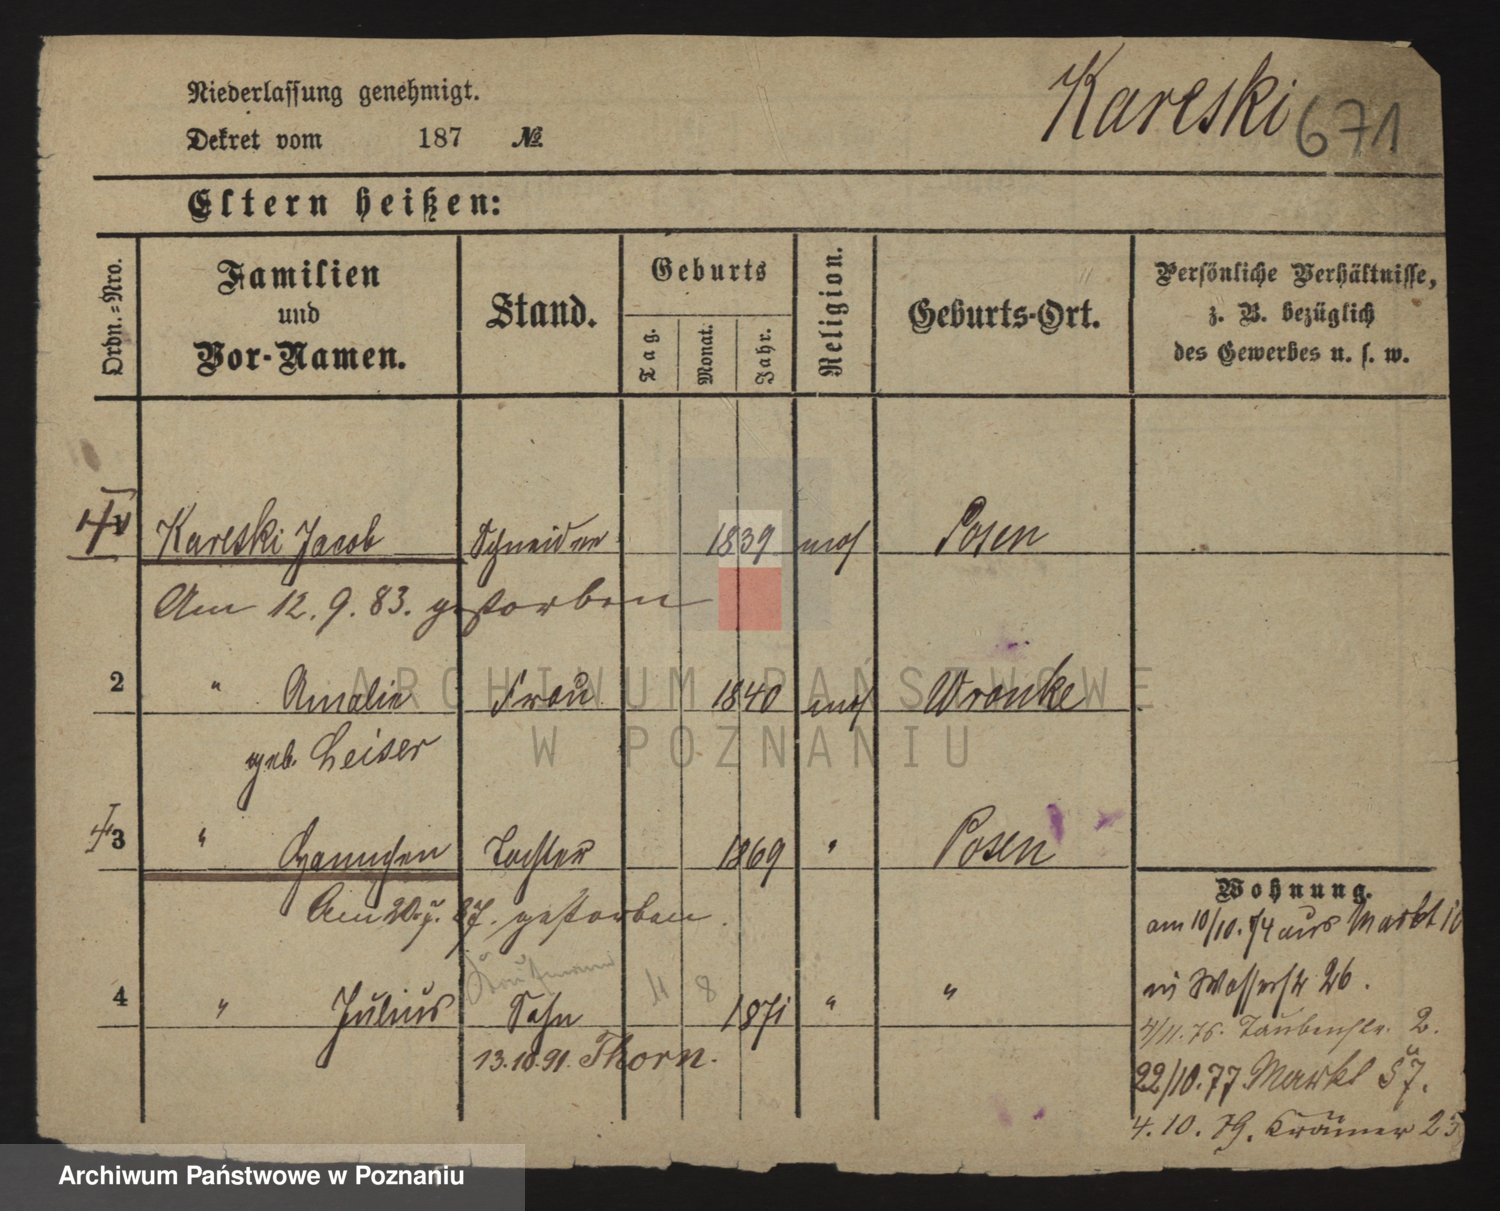 Niederlassung genehmigt.
Kareski 671
Dekret vom 187 №
Eltern heißen:
Ordn.-Nro.
Familien und Vor-Namen.
Stand.
Geburts
Tag.
Monat.
Jahr.
Religion.
Geburts-Ort.
Persönliche Verhältnisse,
z. B. bezüglich
des Gewerbes u. s. w.
1 Kareski Jacob Schneider 1839 mos Posen
Am 12. 9. 83. gestorben
2 " Amalie Frau 1840 mos Wronke
geb. Leiser
3 " Tochter 1869 " Posen
Am 20. 87. gestorben.
Kaufmann
4 " Julius Sohn 11 8 1871 " "
13.10.91. Thorn.
Wohnung.
am 10/10.74 aus Markt
in Wasserstr 26.
4/11.75. Taubenstr. 2.
22/10.77 Markt 57.
4. 10. 79. Krämer 23
ARCHIWUM PAŃSTWOWE
W POZNANIU
Archiwum Państwowe w Poznaniu